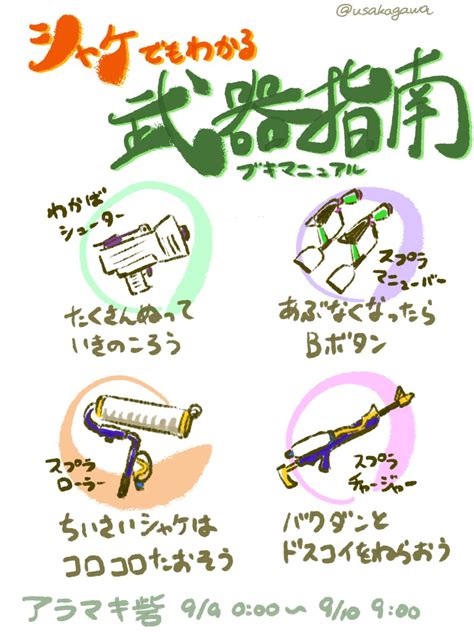 @usakagawa
シャケでもわかる
武器指南
ブキマニュアル
わかば
シューター
たくさんぬって
いきのころう
スプラ
マニューバー
あぶなくなったら
Bボタン
スプラ
ローラー
ちいさいシャケは
コロコロたおそう
スプラ
チャージャー
バクダンと
ドスコイをねらおう
アラマキ砦 9/9 0:00〜9/10 9:00